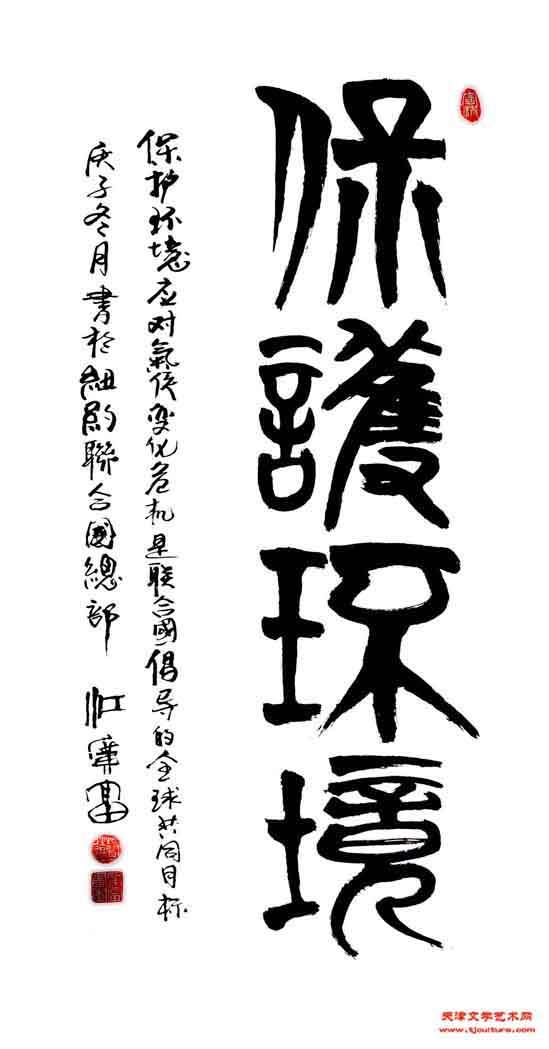 保護环境
保护环境应对氣候变化危机是联合國倡导的全球共同目标
庚子冬月書於紐約聯合國總部
天津文学艺术网
www.tjculture.com